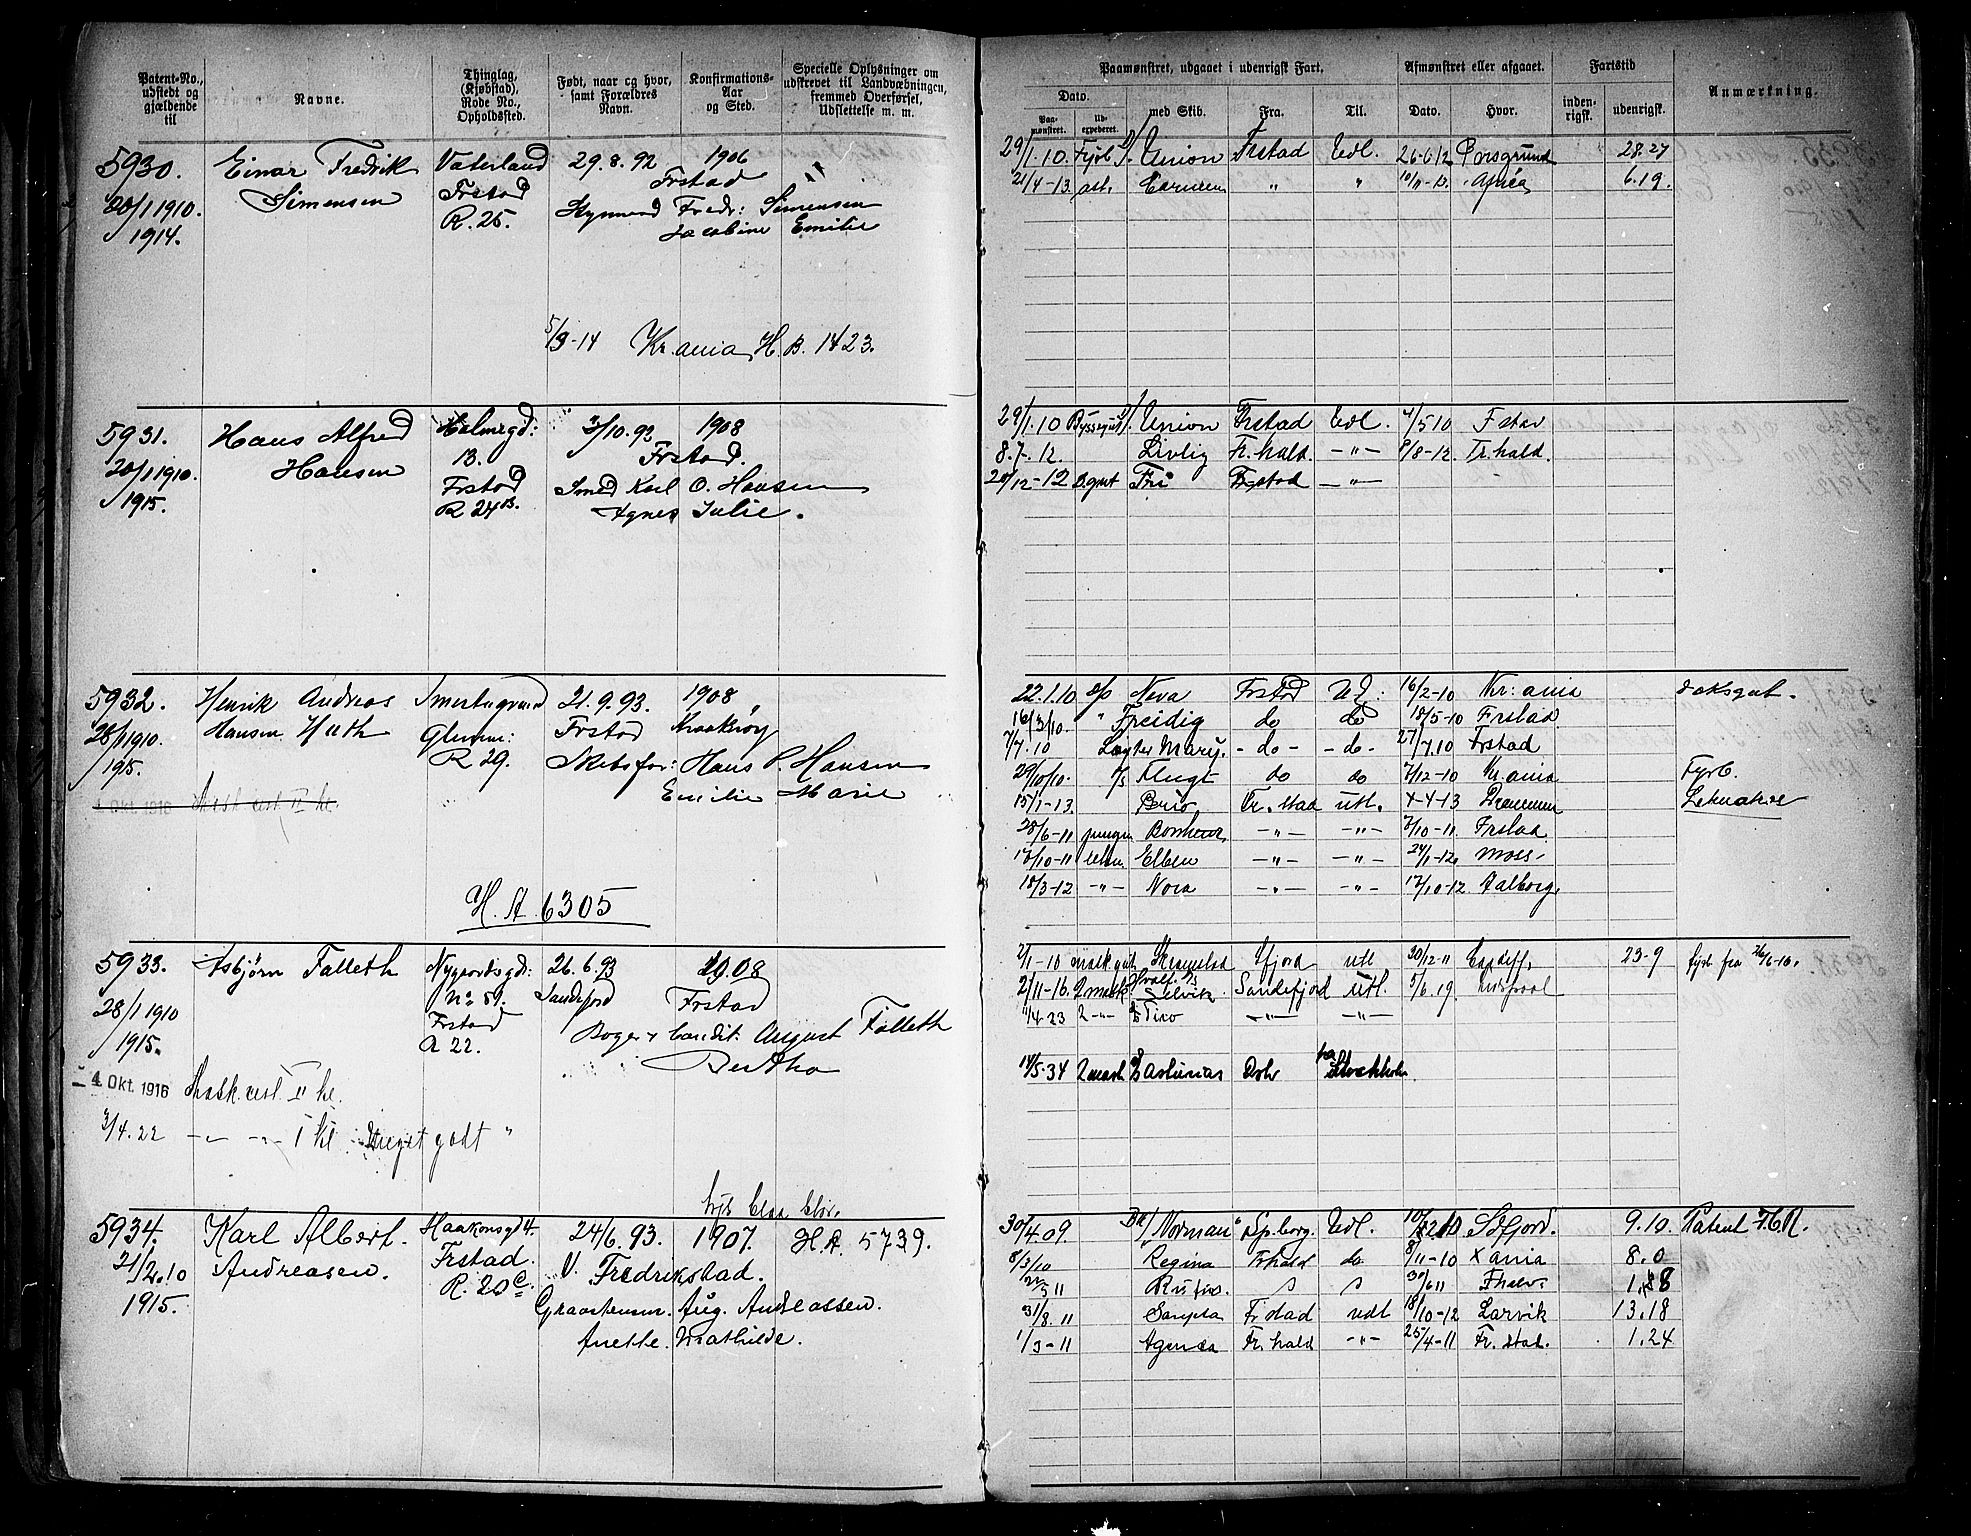 Patent-No., udstedt og gjældende til
Navne.
Thinglag, (Kjøbstad), Rode No., Opholdssted.
Født, naar og hvor, samt Forældres Navn.
Konfirmations-Aar og Sted.
Specielle Oplysninger om udskrevet til Landvæbningen, fremmed Overførsel, Udslettelse m. m.
Paamønstret, udgaaet i udenrigsk Fart.
Dato.
Paa-mønstret.
Ud-expederet.
med Skib.
Fra.
Til.
Afmønstret eller afgaaet.
Dato.
Hvor.
Fartstid
inden-rigsk.
udenrigsk.
Anmærkning.
5930. Einar Fredrik Vaterland 29.8.92 1906
20/1 1910. Simensen Frstad Frstad
1914. R. 25. Fredr: Simensen
Jacobine Emilie
5/3-14 Kr.ania H. B. 1423.
29/1.10. Fyrb. Union Frstad Udl. 26-6 12 Porsgrund 28.27
21/4-13. " " 10/11-13. 6.19.
5931. Hans Alfred Holmegd: 3/10.92 1908
20/1 1910. Hansen 13. Frstad.
1915. Frstad Smed Karl O. Hansen
R 24 B. Agnes Julie.
29/1.10 Union Frstad Udl. 4/5 10 Fstad
8.7.12. Livlig Fr.hald. —"— 8/8-12. Fr.hald.
20/12-12 Fri Frstad —"—
5932. Henrik Andreas 21.9.93. 1908
28/1 1910. Hansen Huth Glemme: Frstad Kraakerøy
1915. R 29. Hans P. Hansen
Emilie Marie
4 Okt. 1916 Mask. cert. II kl.
H. A. 6305
22.1.10 Neva Frstad Ud: 16/2-10 Kr:ania Daksgut.
16/3/10. " Freidig do do 18/5-10 Frstad
7/7.10 Mary. -do- -do- 27/7.10 Frstad
29/10/10. Flugt do do 7/12-10 Kr.ania Fyrb.
15/1-13. Brio Fr.stad utl. 4-4-13 Drammen Letmatros
28/6-11 jungm Bonheur —"— —"— 7/10-11. Frstad
17/10-11 Elben —"— —"— 24/1-12. Moss
18/3-12 —"— Nora —"— —"— 17/10-12. Aalborg.
5933. Asbjørn Falleth Nygaardsgd: 26.6.93 1908
28/1 1910 No 59. Sandefjord Frstad
1915. Frstad August Falleth
R 22. Bertha
4 Okt. 1916 Mask. cert. II kl.
3/4.22 —"— —"— I kl. Meget godt "
2/1-10 utl 30/12-11 Cardiff. 23-9 fyrb fra 26/6-10.
2/11-16. 2 mask Selvik Sandefjord utl. 5/6.19. Liverpool
11/4-23 2 —"— Tiro —"— —"—
14/5-34 2 mask Asturias Oslo Stockholm
5934. Karl Albert. Haakonsgd 4. 24/6.93. 1907. H.A. 5739.
21/2.10 Andreasen. Frstad. V. Fredrikstad.
1915. R. 20 c. Aug. Andreassen.
Anette Mathilde.
30/4.09. "Norman" Spsborg. Udl. 9.10. Patent F.C.R.
8/3/10 Regina Frhald do 8/11-10 Xania 8.0
Rufus. 30/6 11 1.
31/8.11 Fr stad udl 18/10-12 Larvik 13.18
1/3-11 Fr.hald —"— 25/4-11 Fr.stad. 1.24